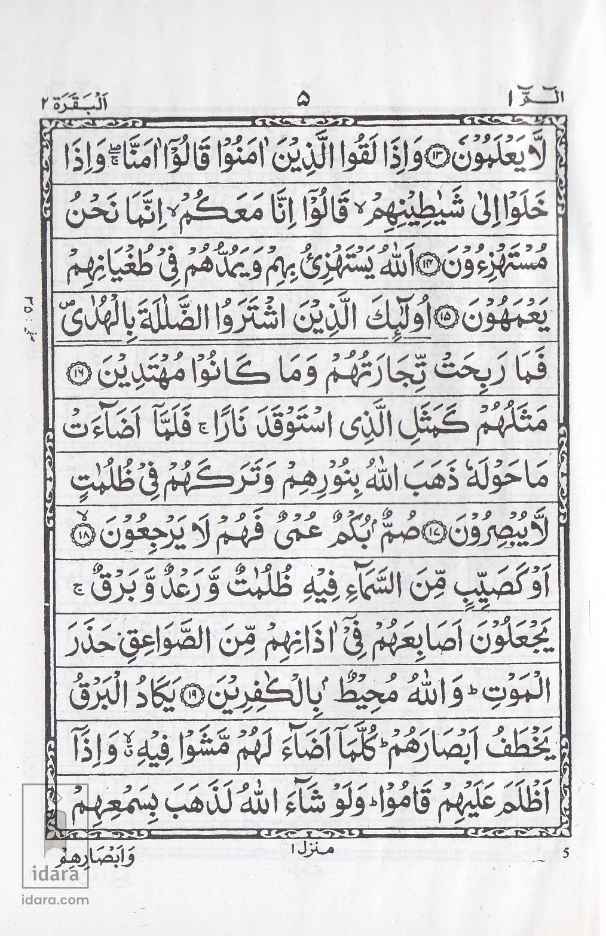 الٓمّٓ ١
٥
اَلْبَقَرَة ٢
لَّا يَعْلَمُوْنَ ۝١٣ وَاِذَا لَقُوا الَّذِيْنَ اٰمَنُوْا قَالُوْٓا اٰمَنَّا ۖۚ وَاِذَا
خَلَوْا اِلٰى شَيٰطِيْنِهِمْ ۙ قَالُوْٓا اِنَّا مَعَكُمْ ۙ اِنَّمَا نَحْنُ
مُسْتَهْزِءُوْنَ ۝١٤ اَللّٰهُ يَسْتَهْزِئُ بِهِمْ وَيَمُدُّهُمْ فِيْ طُغْيَانِهِمْ
يَعْمَهُوْنَ ۝١٥ اُولٰٓئِكَ الَّذِيْنَ اشْتَرَوُا الضَّلٰلَةَ بِالْهُدٰى ۪
فَمَا رَبِحَتْ تِّجَارَتُهُمْ وَمَا كَانُوْا مُهْتَدِيْنَ ۝١٦
مَثَلُهُمْ كَمَثَلِ الَّذِى اسْتَوْقَدَ نَارًا ۚ فَلَمَّآ اَضَآءَتْ
مَا حَوْلَهٗ ذَهَبَ اللّٰهُ بِنُوْرِهِمْ وَتَرَكَهُمْ فِيْ ظُلُمٰتٍ
لَّا يُبْصِرُوْنَ ۝١٧ صُمٌّۢ بُكْمٌ عُمْيٌ فَهُمْ لَا يَرْجِعُوْنَ ۝١٨ۙ
اَوْ كَصَيِّبٍ مِّنَ السَّمَآءِ فِيْهِ ظُلُمٰتٌ وَّرَعْدٌ وَّبَرْقٌ ۚ
يَجْعَلُوْنَ اَصَابِعَهُمْ فِيْٓ اٰذَانِهِمْ مِّنَ الصَّوَاعِقِ حَذَرَ
الْمَوْتِ ؕ وَاللّٰهُ مُحِيْطٌۢ بِالْكٰفِرِيْنَ ۝١٩ يَكَادُ الْبَرْقُ
يَخْطَفُ اَبْصَارَهُمْ ؕ كُلَّمَآ اَضَآءَ لَهُمْ مَّشَوْا فِيْهِ ۙۗ وَاِذَآ
اَظْلَمَ عَلَيْهِمْ قَامُوْا ؕ وَلَوْ شَآءَ اللّٰهُ لَذَهَبَ بِسَمْعِهِمْ
5
منزل ١
وَاَبْصَارِهِمْ
idara
idara.com